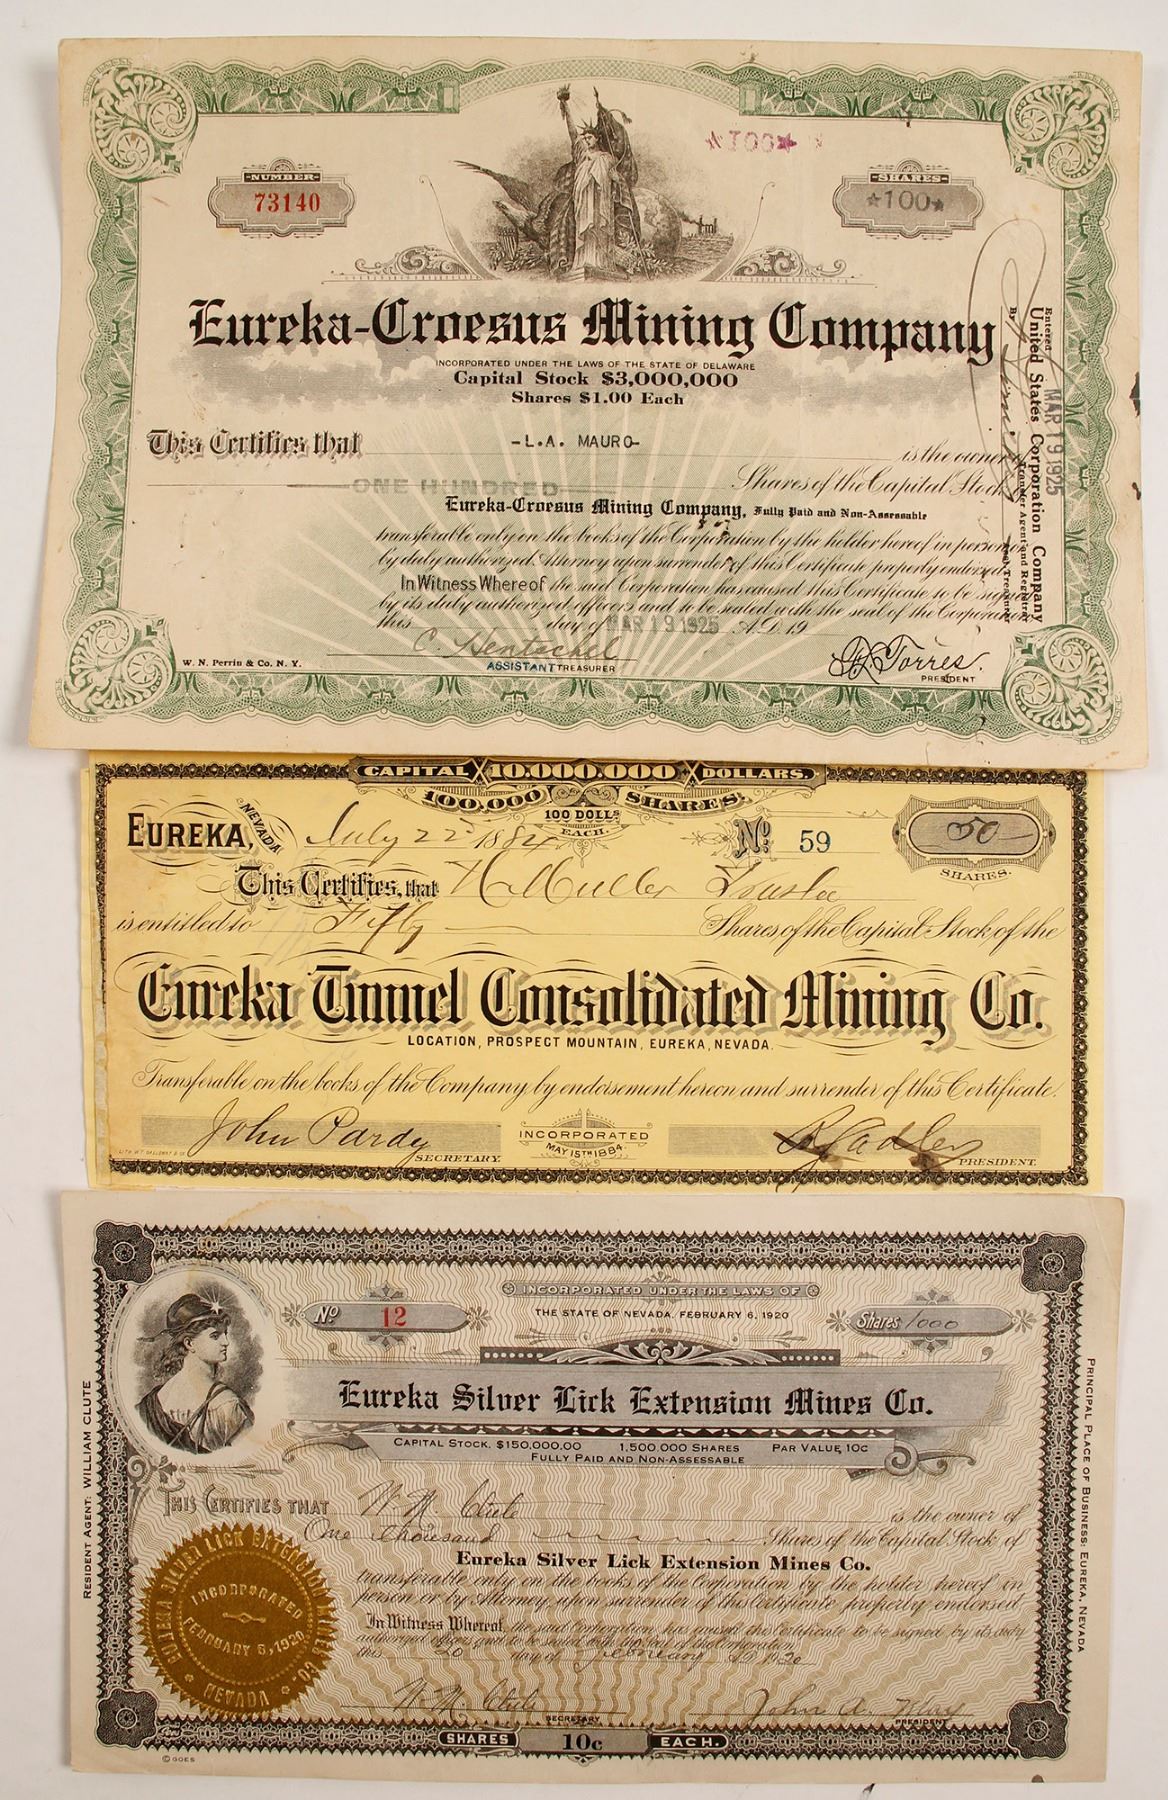 NUMBER
73140
★100★
SHARES
★100★
Eureka-Croesus Mining Company
INCORPORATED UNDER THE LAWS OF THE STATE OF DELAWARE
Capital Stock $3,000,000
Shares $1.00 Each
This Certifies that -L.A. MAURO- is the owner
ONE HUNDRED Shares of the Capital Stock
Eureka-Croesus Mining Company, Fully Paid and Non-Assessable
transferable only on the books of the Corporation by the holder hereof in person or
by duly authorized Attorney upon surrender of this Certificate properly endorsed.
In Witness Whereof the said Corporation has caused this Certificate to be signed
by its duly authorized officers and to be sealed with the seal of the Corporation
this day of MAR 19 1925 A.D. 19
C. Hentschel
ASSISTANT TREASURER
Torres.
PRESIDENT
W. N. Perrin & Co. N. Y.
Entered MAR 19 1925
United States Corporation Company
Transfer Agent and Registrar
By
CAPITAL 10.000.000 DOLLARS.
100.000 SHARES.
100 DOLLS
EACH.
EUREKA, NEVADA July 22d 1884 No. 59
50
SHARES.
This Certifies, that H Muller Trustee
is entitled to Fifty Shares of the Capital Stock of the
Eureka Tunnel Consolidated Mining Co.
LOCATION, PROSPECT MOUNTAIN, EUREKA, NEVADA.
Transferable on the books of the Company by endorsement hereon and surrender of this Certificate.
John Pardy
SECRETARY.
INCORPORATED
MAY 15TH 1884.
Sadler
PRESIDENT.
INCORPORATED UNDER THE LAWS OF
THE STATE OF NEVADA. FEBRUARY 6, 1920
No 12
Shares 1000
Eureka Silver Lick Extension Mines Co.
CAPITAL STOCK, $150,000.00 1,500.000 SHARES PAR VALUE, 10C
FULLY PAID AND NON-ASSESSABLE
THIS CERTIFIES THAT W. N. Clute is the owner of
One thousand Shares of the Capital Stock of
Eureka Silver Lick Extension Mines Co.
transferable only on the books of the Corporation by the holder hereof in
person or by Attorney upon surrender of this Certificate properly endorsed.
In Witness Whereof, the said Corporation has caused this Certificate to be signed by its duly
authorized officers and to be sealed with the Seal of the Corporation
this 20 day of February A.D. 1920
W. N. Clute
SECRETARY
John A.
PRESIDENT
SHARES 10c EACH.
© GOES
RESIDENT AGENT: WILLIAM CLUTE
PRINCIPAL PLACE OF BUSINESS: EUREKA, NEVADA
EUREKA SILVER LICK EXTENSION MINES CO.
INCORPORATED
FEBRUARY 6, 1920
NEVADA